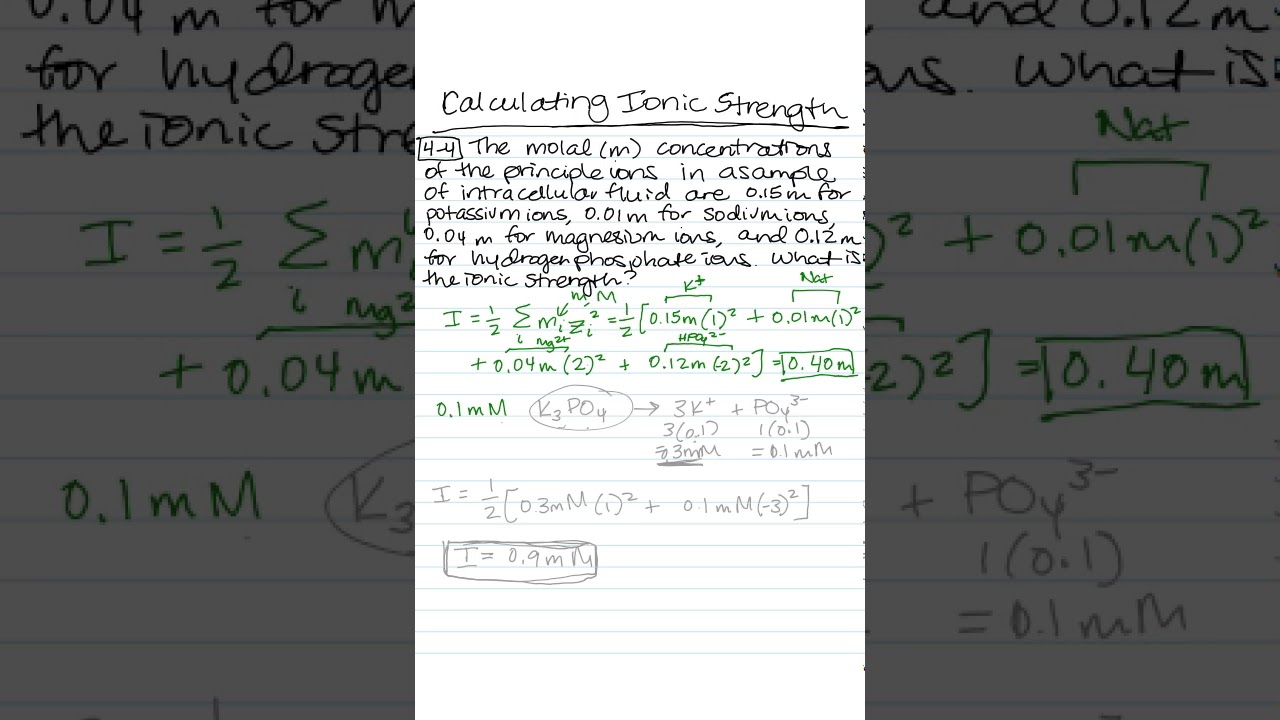 Calculating Ionic Strength
4-4 The molal (m) concentrations
of the principle ions in a sample
of intracellular fluid are 0.15 m for
potassium ions, 0.01 m for sodium ions,
0.04 m for magnesium ions, and 0.12 m
for hydrogen phosphate ions. What is
the ionic strength?
m M K+ Na+
I = 1/2 Σ i mᵢ zᵢ² = 1/2 [0.15m(1)² + 0.01m(1)²
mg²⁺ HPO₄²⁻
+ 0.04m (2)² + 0.12m (-2)²] = 0.40 m
0.1 mM K₃PO₄ → 3K⁺ + PO₄³⁻
3(0.1) 1(0.1)
= 0.3mM = 0.1 mM
I = 1/2 [0.3mM (1)² + 0.1 mM (-3)²]
I = 0.9 mM